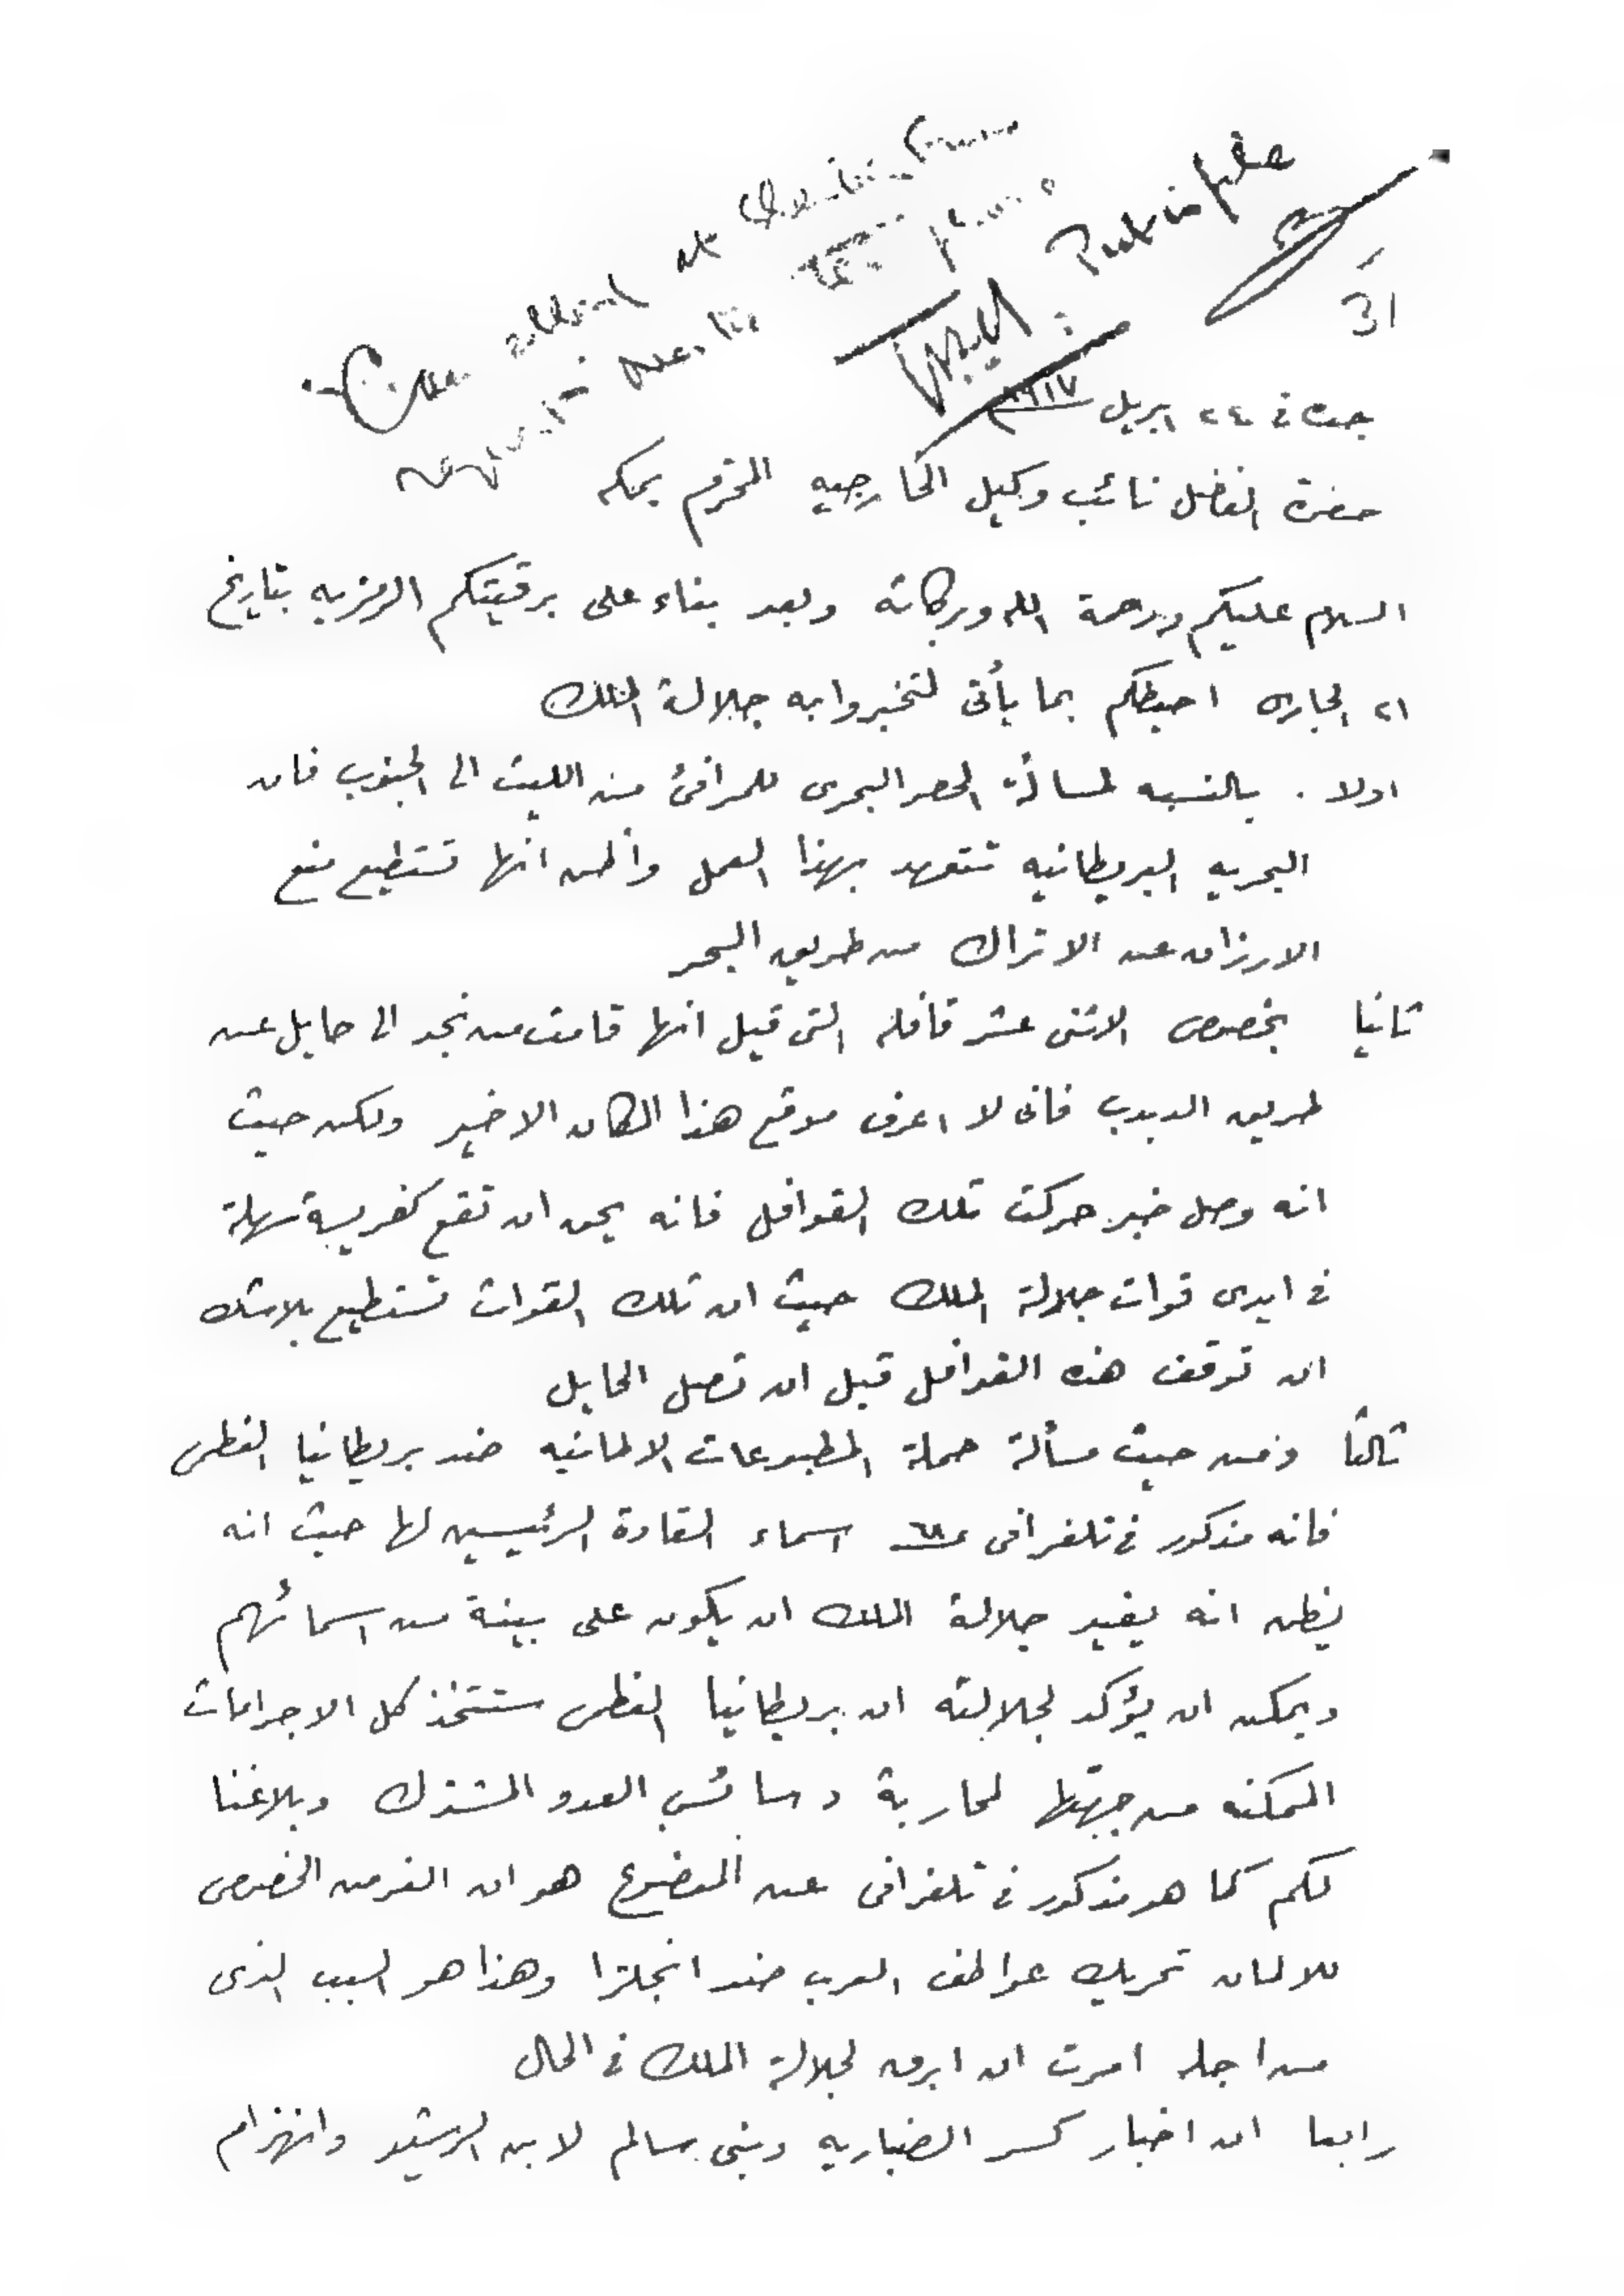 31
جده في ٢٤ ابريل ١٩١٧
حضرة الفاضل نائب وكيل الخارجيه المحترم بمكه
السلام عليكم ورحمة الله وبركاته وبعد بناء على برقيتكم الرمزيه بتاريخ
٢١ الجارى احيطكم بما يأتى لتخبروا به جلالة الملك
اولا . بالنسبه لمسألة الحصر البحرى للمرافئ من الليث الى الجنوب فان
البحريه البريطانيه تتعهد بهذا العمل وأظن انها تستطيع منع
الارزاق عن الاتراك من طريق البحر
ثانيا بخصوص الاثنى عشر قافله التى قيل انها قامت من نجد الى حايل عن
طريق الدبدب فانى لا اعرف موقع هذا المكان الاخير ولكن حيث
انه وصل خبر حركت تلك القوافل فانه يحق ان تقع كفريسة سهلة
فى ايدى قوات جلالة الملك حيث ان تلك القوات تستطيع بلا شك
ان توقف هذه القوافل قبل ان تصل الحايل
ثالثا ومن حيث مسألة حملة المطبوعات الالمانيه ضد بريطانيا العظمى
فانه مذكور فى تلغرافى اسماء القادة الرئيسين لها حيث انه
يظن انه يفيد جلالة الملك ان يكون على بينة من اسمائهم
ويمكن ان يؤكد لجلالته ان بريطانيا العظمى ستتخذ كل الاجراءات
الممكنه من جهتها لمحاربة دسائس العدو المشترك وبلاغنا
لكم كما هو مذكور فى تلغرافى عن الموضوع هو ان الغرض الخصوصى
للالمان تحريك عواطف العرب ضد انجلترا وهذا هو السبب الذى
من اجله امرت ان ابرق لجلالة الملك فى الحال
رابعا ان اخبار كسر الضباريه وبنى سالم لابن الرشيد وانهزام